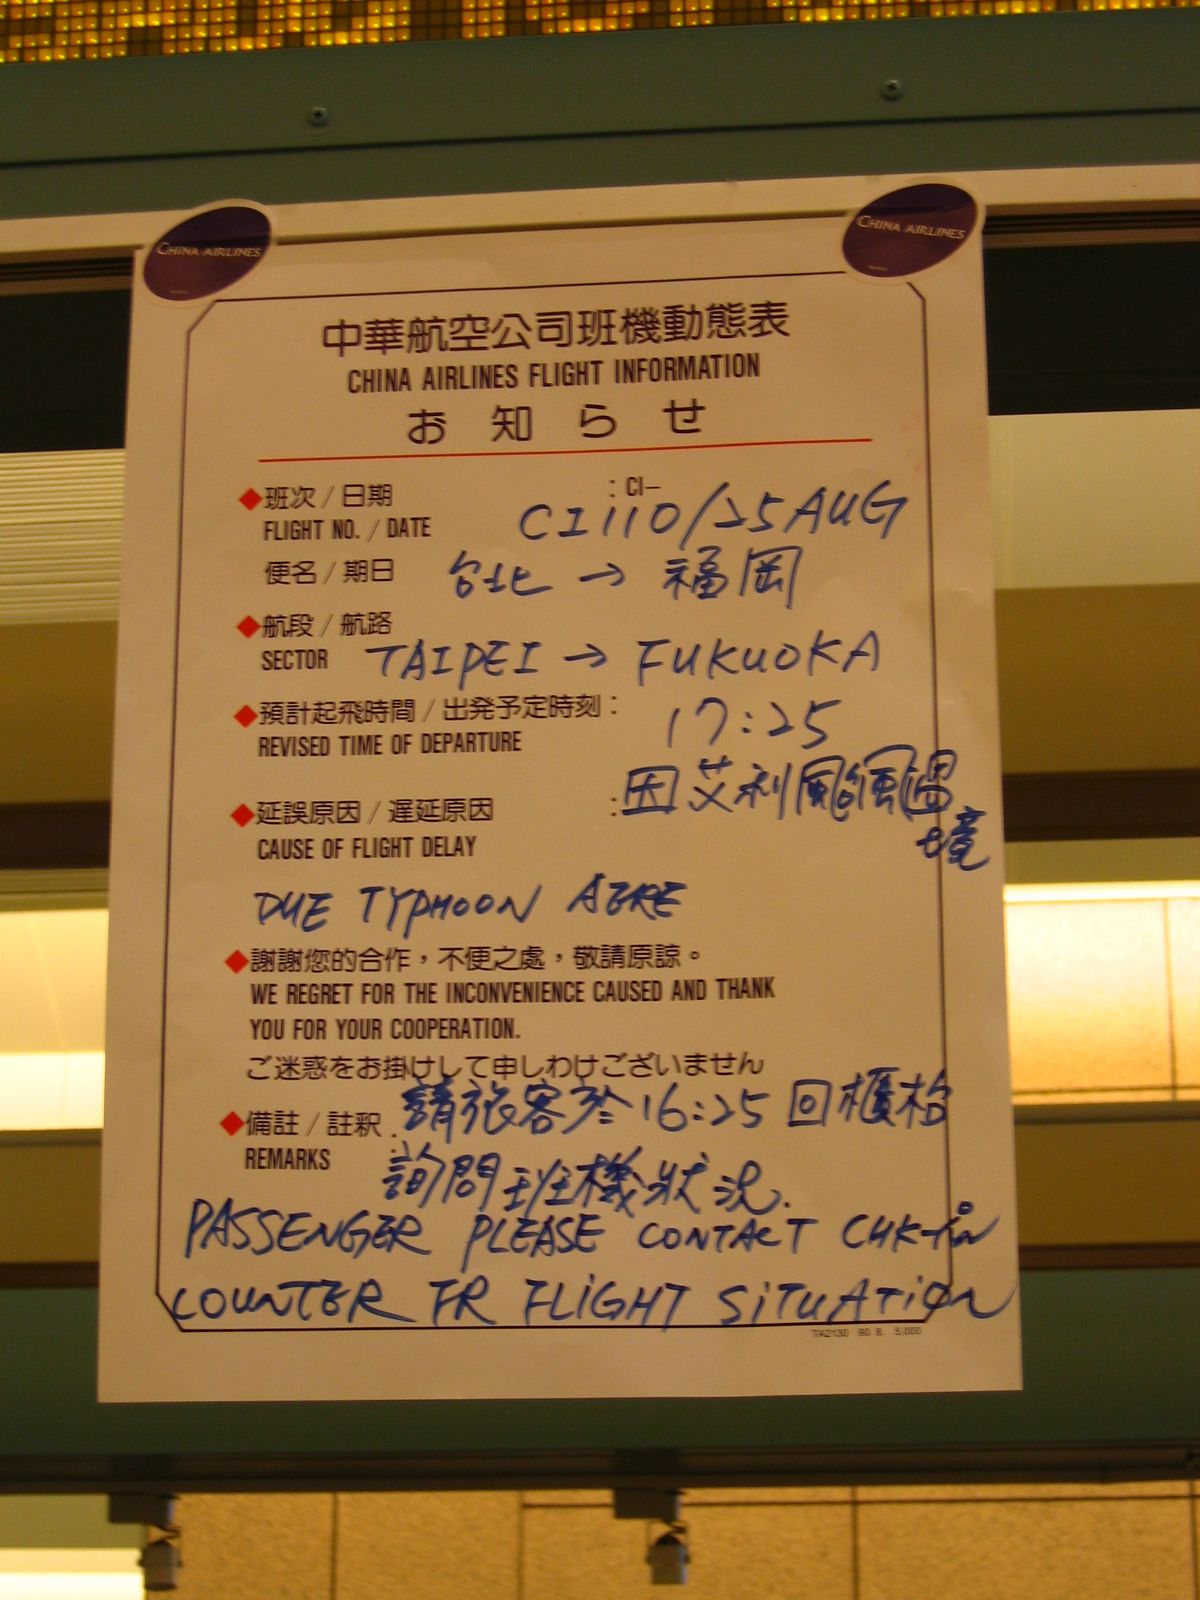 CHINA AIRLINES
CHINA AIRLINES
中華航空公司班機動態表
CHINA AIRLINES FLIGHT INFORMATION
お知らせ
◆班次/日期 : CI-
FLIGHT NO. / DATE CI110/25AUG
便名/期日 台北→福岡
◆航段/航路
SECTOR TAIPEI → FUKUOKA
◆預計起飛時間/出発予定時刻: 17:25
REVISED TIME OF DEPARTURE
◆延誤原因/遅延原因 :因艾利颱風過境
CAUSE OF FLIGHT DELAY
DUE TYPHOON AERE
◆謝謝您的合作,不便之處,敬請原諒。
WE REGRET FOR THE INCONVENIENCE CAUSED AND THANK
YOU FOR YOUR COOPERATION.
ご迷惑をお掛けして申しわけございません
◆備註/註釈: 請旅客於16:25回櫃枱
REMARKS 詢問班機狀況.
PASSENGER PLEASE CONTACT CHK-in
COUNTER FR FLIGHT SITUATION
TA2130 90. 8. 5,000